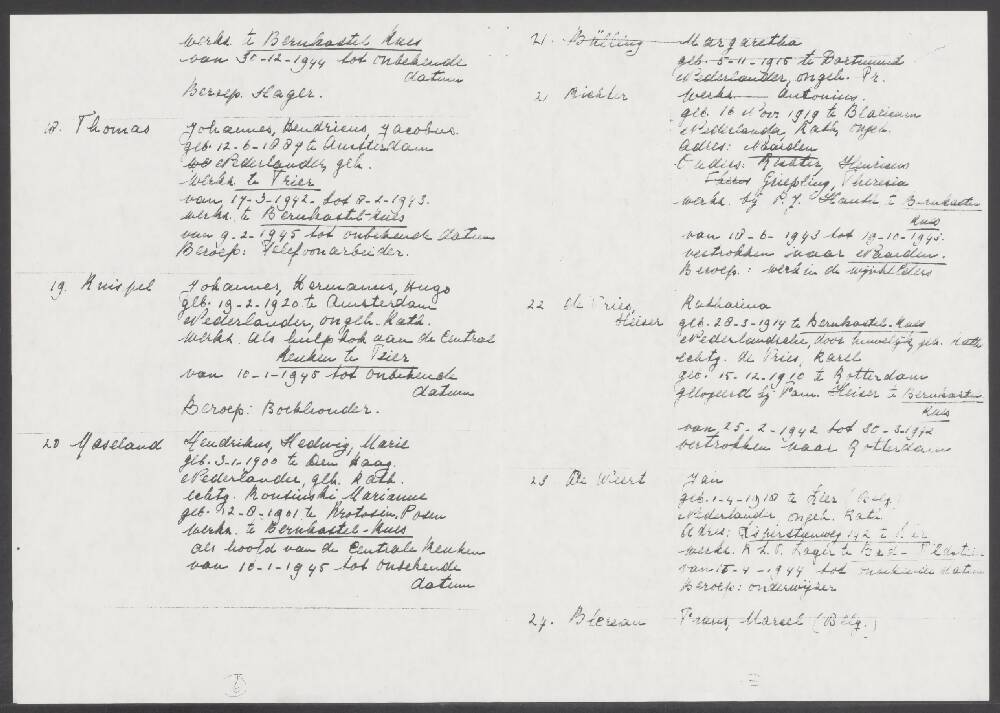 werkz. te Bernkastel Kues
van 30-12-1944 tot onbekende
datum
Beroep. Slager.
18. Thomas Johannes, Hendricus, Jacobus.
geb. 12-6-1889 te Amsterdam
Nederlander, geh.
werkz. te Trier
van 17-3-1942. tot 8-2-1943.
werkz. te Bernkastel-Kues
van 9-2-1945 tot onbekende datum
Beroep: Telefoonarbeider.
19. Knispel Johannes, Hermannus, Hugo
geb. 19-2-1920 te Amsterdam
Nederlander, ongeh. Kath.
werkz. als hulpkok aan de Central
Keuken te Trier
van 10-1-1945 tot onbekende
datum
Beroep: Boekhouder.
20 Maseland Hendrikus, Hedwig, Marie
geb. 3-1-1900 te Den Haag.
Nederlander, geh. Kath.
echtg. Rousinski Marianne
geb. 12-8-1901 te Krotosin, Posen
werkz. te Bernkastel-Kues
als hoofd van de Centrale Keuken
van 10-1-1945 tot onbekende
datum
21. Bülling Margaretha
geb. 5-11-1915 te Dortmund
Nederlander, ongeh. Pr.
21 Richter werkz. Antonius.
geb. 16 Nov 1919 te Blaricum
Nederlander, Kath, ongeh.
Adres: Naarden
Ouders: Richter, Henricus
Griepling, Theresia
werkz. bij P.J. te Bernkastel
Kues
van 18-6-1943 tot 19-10-1943.
vertrokken naar Naarden.
Beroep.: werk in de
22 de Vries, Katharina
Heiser geb. 28-3-1914 te Bernkastel-Kues
Nederlandsche, door huwelijk, geh. Kath
echtg. de Vries, Karel
geb. 15-12-1910 te Rotterdam
gelogeerd bij Fam. Heiser te Bernkastel
Kues
van 25-2-1942 tot 30-3-1942
vertrokken naar Rotterdam
23 De Weert Jan
geb. 1-4-1918 te Lier (Belg.)
Nederlander ongeh. Kath.
Adres: 142 te Lier
werkz. Lager te
van 15-4-1944 tot onbekende datum
Beroep: onderwijzer
24. Blereau Frans, Marcel (Belg.)